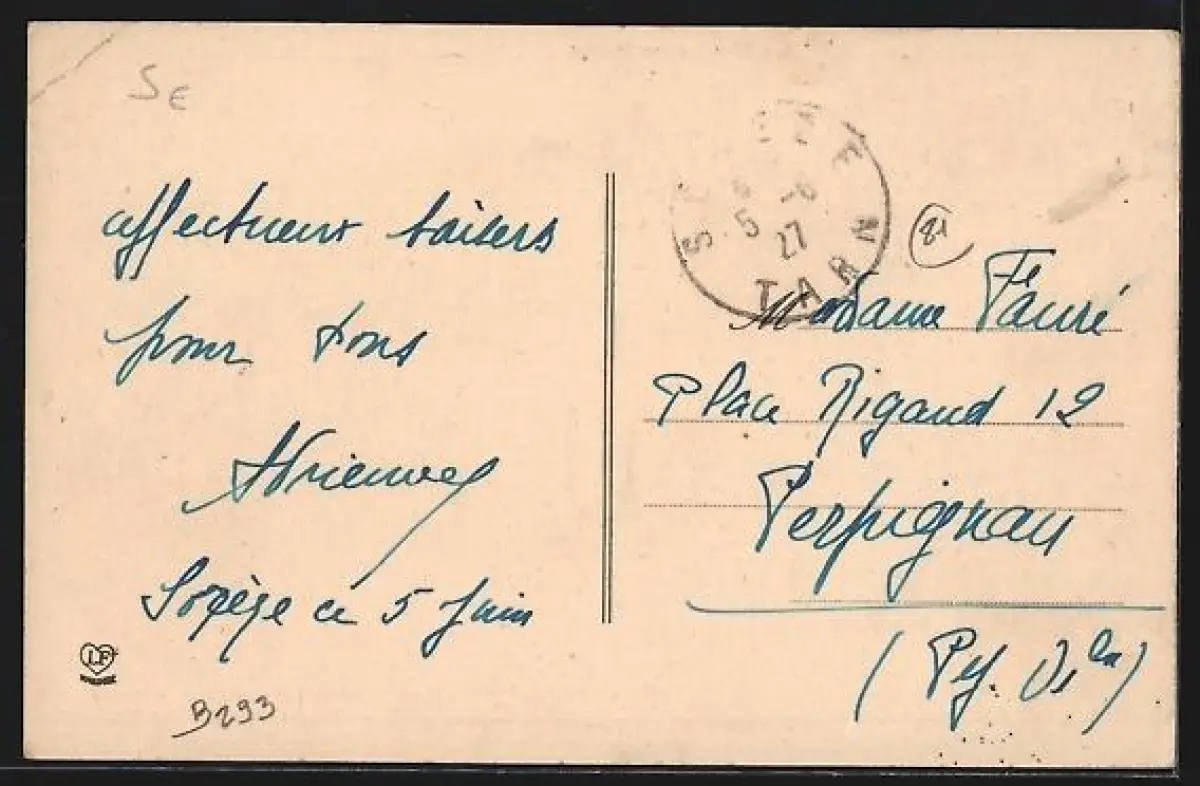 SE
affectueux baisers
pour tous
Adrienne
Sorèze ce 5 Juin
LF
B293
SOREZE
5 -6
27
TARN
81
Madame Fauré
Place Rigaud 12
Perpignan
(Pyr. Or les)